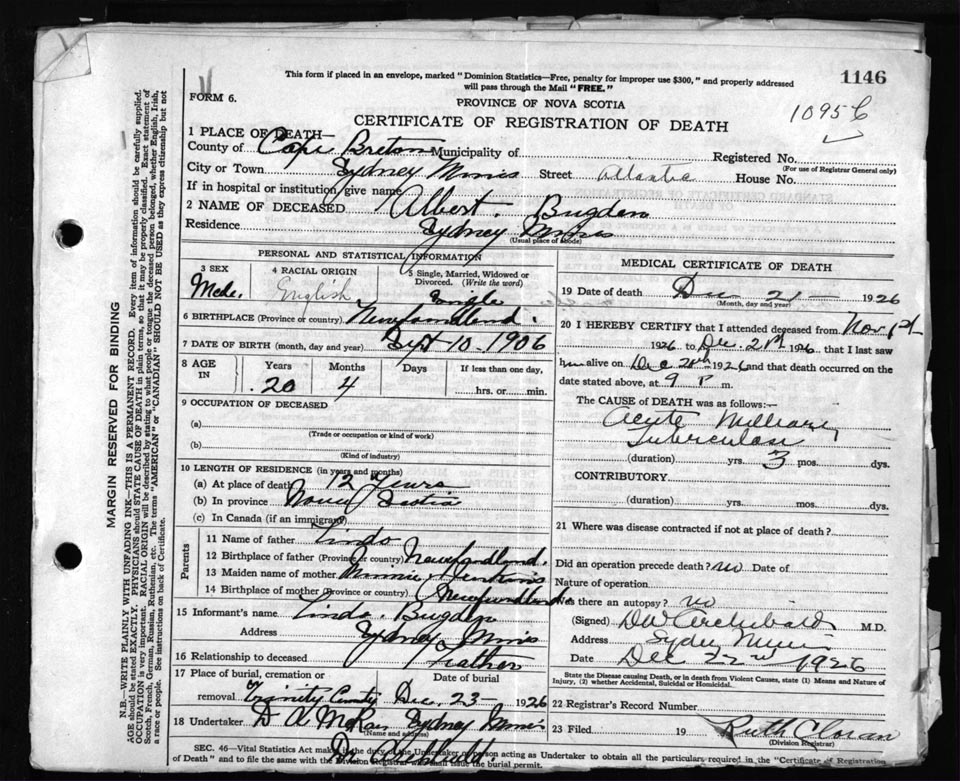 This form if placed in an envelope, marked "Dominion Statistics—Free, penalty for improper use $300," and properly addressed
will pass through the Mail "FREE."
1146
FORM 6.
PROVINCE OF NOVA SCOTIA
10956
CERTIFICATE OF REGISTRATION OF DEATH
1 PLACE OF DEATH—
County of Cape Breton Municipality of Registered No.
(For use of Registrar General only)
City or Town Sydney Mines Street Atlantic House No.
If in hospital or institution, give name
2 NAME OF DECEASED Albert Bugden
Residence Sydney Mines
(Usual place of abode)
PERSONAL AND STATISTICAL INFORMATION
3 SEX 4 RACIAL ORIGIN 5 Single, Married, Widowed or
Divorced. (Write the word)
Male. English Single
6 BIRTHPLACE (Province or country) Newfoundland.
7 DATE OF BIRTH (month, day and year) Sept 10. 1906
8 AGE IN Years Months Days If less than one day,
20 4 hrs. or min.
9 OCCUPATION OF DECEASED
(a)
(Trade or occupation or kind of work)
(b)
(Kind of industry)
10 LENGTH OF RESIDENCE (in years and months)
(a) At place of death 12 Years
(b) In province Nova Scotia
(c) In Canada (if an immigrant)
Parents
11 Name of father
12 Birthplace of father (Province or country) Newfoundland.
13 Maiden name of mother Minnie Jenkins
14 Birthplace of mother (Province or country) Newfoundland
15 Informant's name Bugden
Address Sydney Mines
16 Relationship to deceased Father
17 Place of burial, cremation or Date of burial
removal. Trinity Dec. 23 1926
18 Undertaker D A McRae Sydney Mines
(Name and address)
MEDICAL CERTIFICATE OF DEATH
19 Date of death Dec 21 1926
(Month, day and year)
20 I HEREBY CERTIFY that I attended deceased from Nov 1st
1926 to Dec. 21st 1926 that I last saw
him alive on Dec 20th 1926 and that death occurred on the
date stated above, at 9 P m.
The CAUSE OF DEATH was as follows:—
Acute Milliary
Tuberculosis
(duration) yrs. 3 mos. dys.
CONTRIBUTORY
(duration) yrs. mos. dys.
21 Where was disease contracted if not at place of death?
Did an operation precede death? no Date of
Nature of operation
Was there an autopsy? no
(Signed) DW Archibald M.D.
Address Sydney Mines
Date Dec 22nd 1926
State the Disease causing Death, or in death from Violent Causes, state (1) Means and Nature of
Injury, (2) whether Accidental, Suicidal or Homicidal.
22 Registrar's Record Number
23 Filed 19 Ruth Cloran
(Division Registrar)
SEC. 46—Vital Statistics Act makes it the duty of the Undertaker or person acting as Undertaker to obtain all the particulars required in the "Certificate of Registration
of Death" and to file the same with the Division Registrar who shall issue the burial permit.
MARGIN RESERVED FOR BINDING
N.B.—WRITE PLAINLY WITH UNFADING INK—THIS IS A PERMANENT RECORD. Every item of information should be carefully supplied.
AGE should be stated EXACTLY. PHYSICIANS should STATE CAUSE OF DEATH in plain terms, so that it may be properly classified. Exact statement of
OCCUPATION is very important. RACIAL ORIGIN will be described by stating to what people or tongue the deceased person belonged, whether English, Irish,
Scotch, French, German, Russian, Ruthenian, etc. The terms "AMERICAN" or "CANADIAN" SHOULD NOT BE USED as they express citizenship but not
a race or people. See instructions on back of Certificate.